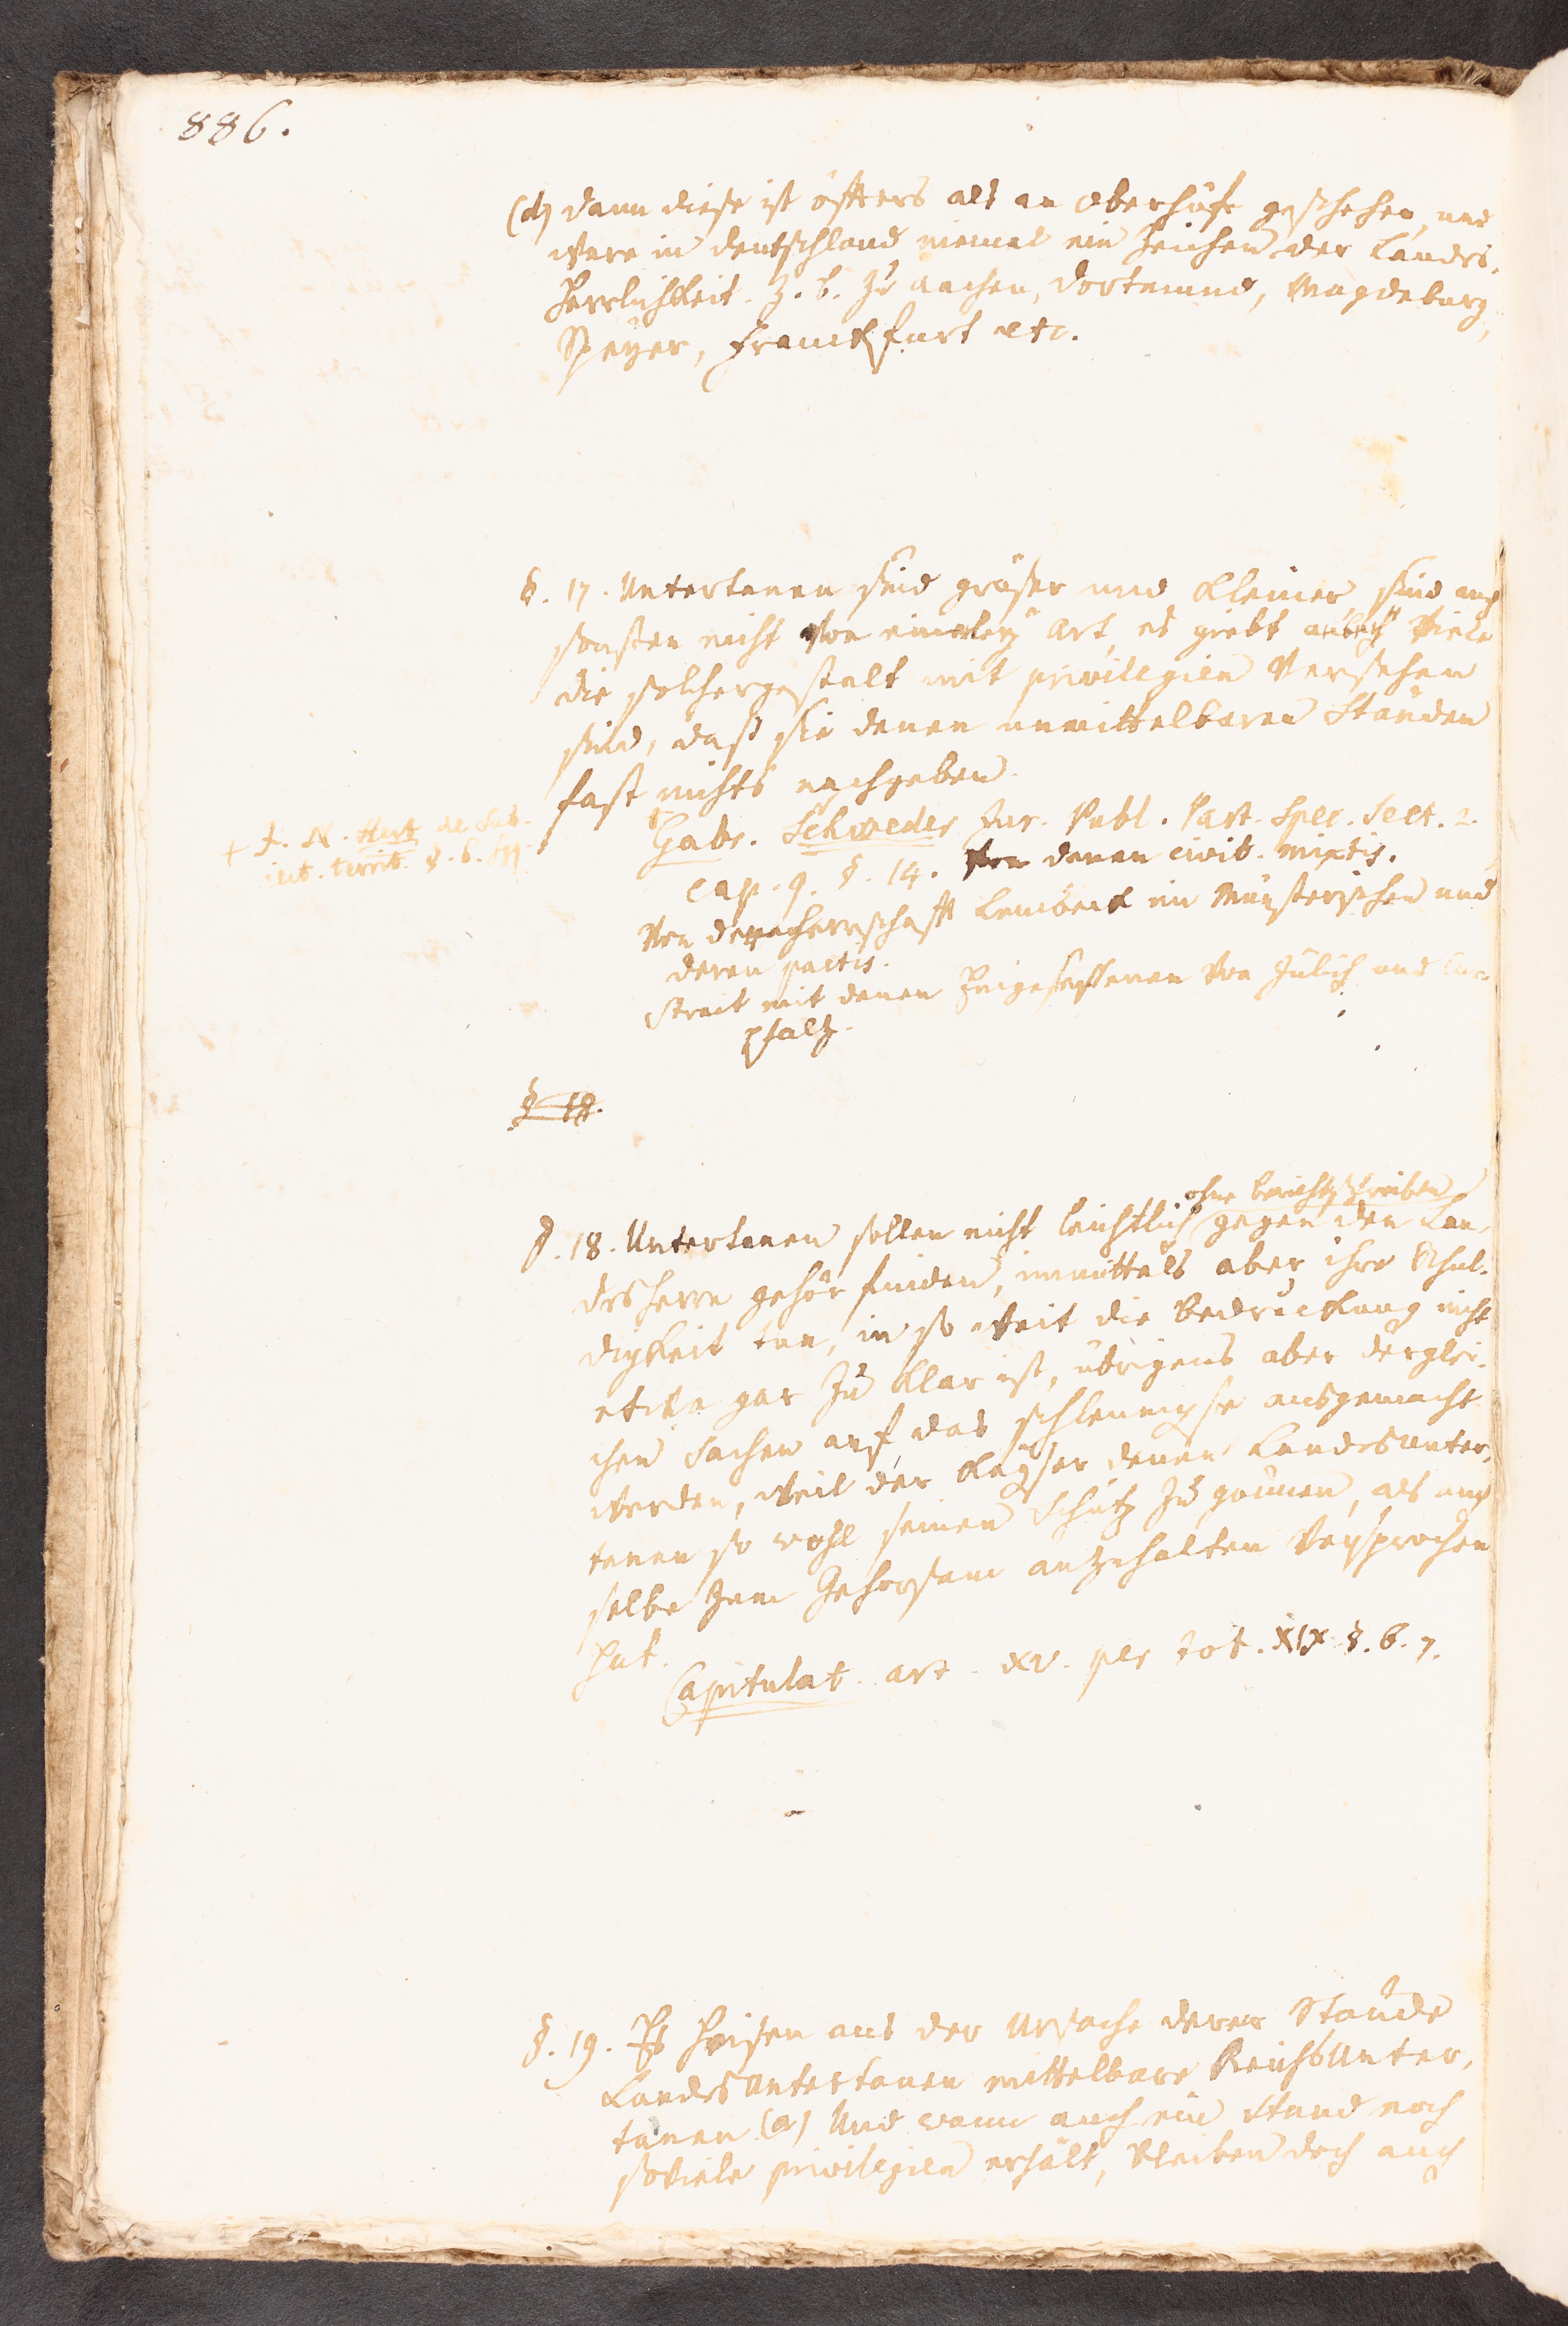 886.
(d) dann dieses ist öffters als an Oberhöfe geschehen, und
ware in deutschland niemal ein Zeichen der Landes-
herrlichkeit. Z. b. Zu aachen, dortmund, Magdeburg,
Speyer, Franckfurt etc.
§. 17. Untertanen sind gröser und kleiner sind auch
sonsten nicht von einerley Art, es giebt anbey Viele
die solchergestalt mit privilegien Versehen
sind, dass sie denen unmittelbaren Ständen
fast nichts nachgeben.
+ J. N. Hert de sub-
iect. territ. §. 6. sq.
+
Gabr. Schweder Jur. Publ. Part. Spec. Sect. 2.
cap. 9. §. 14. Von denen civit. mixtis.
Von der herrschafft Lembeck im Münsterischen und
deren pactis.
Streit mit denen Eingesessenen Von Jülich und Cur-
pfaltz.
§ 18.
§. 18. Untertanen sollen nicht leichtlich gegen den Lan-
ohne berichtschreiben
desherrn gehör finden, inmittels aber ihre Schul-
digkeit tun, in so weit die Bedruckung nicht
etwa gar Zu klar ist, übrigens aber derglei-
chen Sachen auf das schleunigste ausgemacht
werden, weil der Kayser denen Landesunter-
tanen so wohl seinen Schutz Zu gönnen, als auch
selbe Zum Gehorsam anzuhalten Versprochen
hat.
Capitulat. art. XV. per tot. XIX §. 6. 7.
§. 19. Es heisen aus der Ursache derer Stände
LandesUntertanen mittelbare ReichsUnter-
tanen (a) Und wann auch ein Stand noch
soviele privilegien erhält, bleiben doch auch